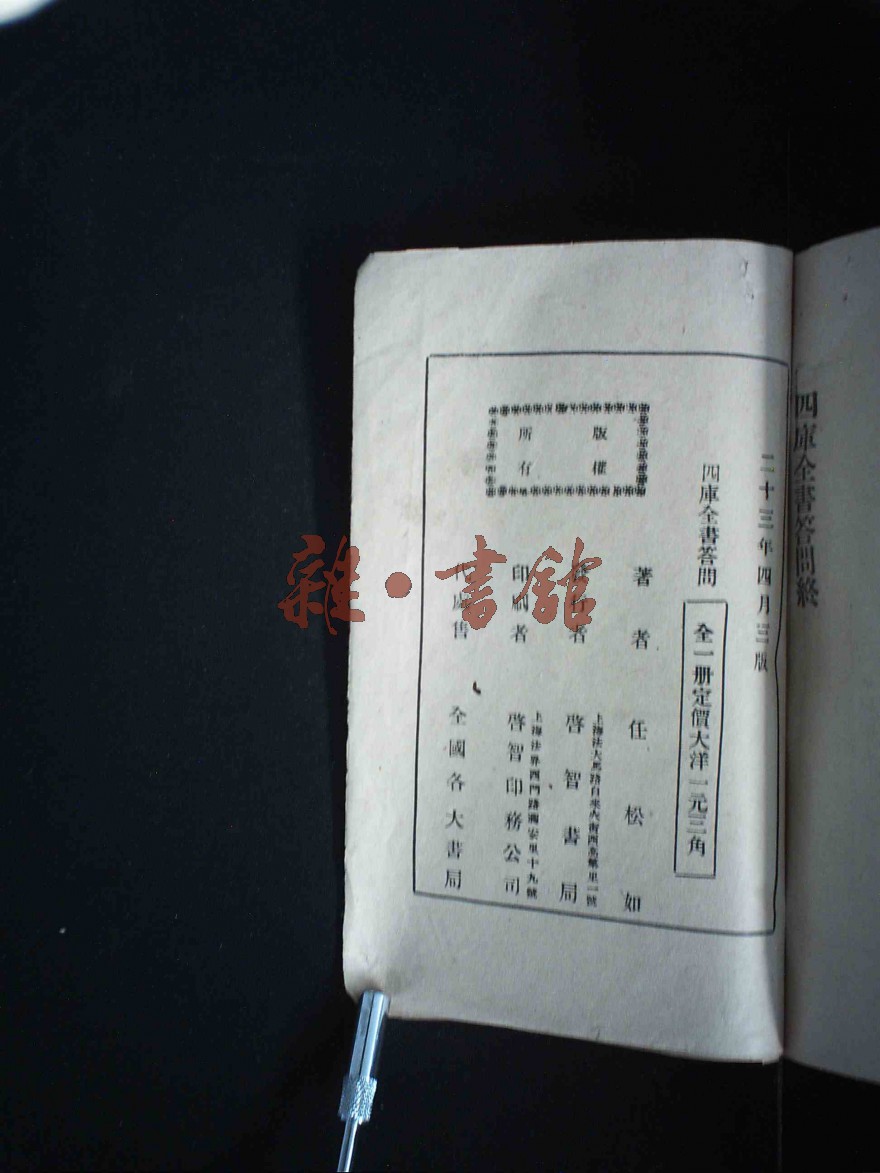 四庫全書答問終
二十三年四月三版
四庫全書答問
全一册定價大洋一元三角
著者 任松如
發行者 啓智書局
上海法大馬路自來火街西高第里一號
印刷者 啓智印務公司
上海法界西門路潤安里十九號
代處售 全國各大書局
版權
所有
雜·書館